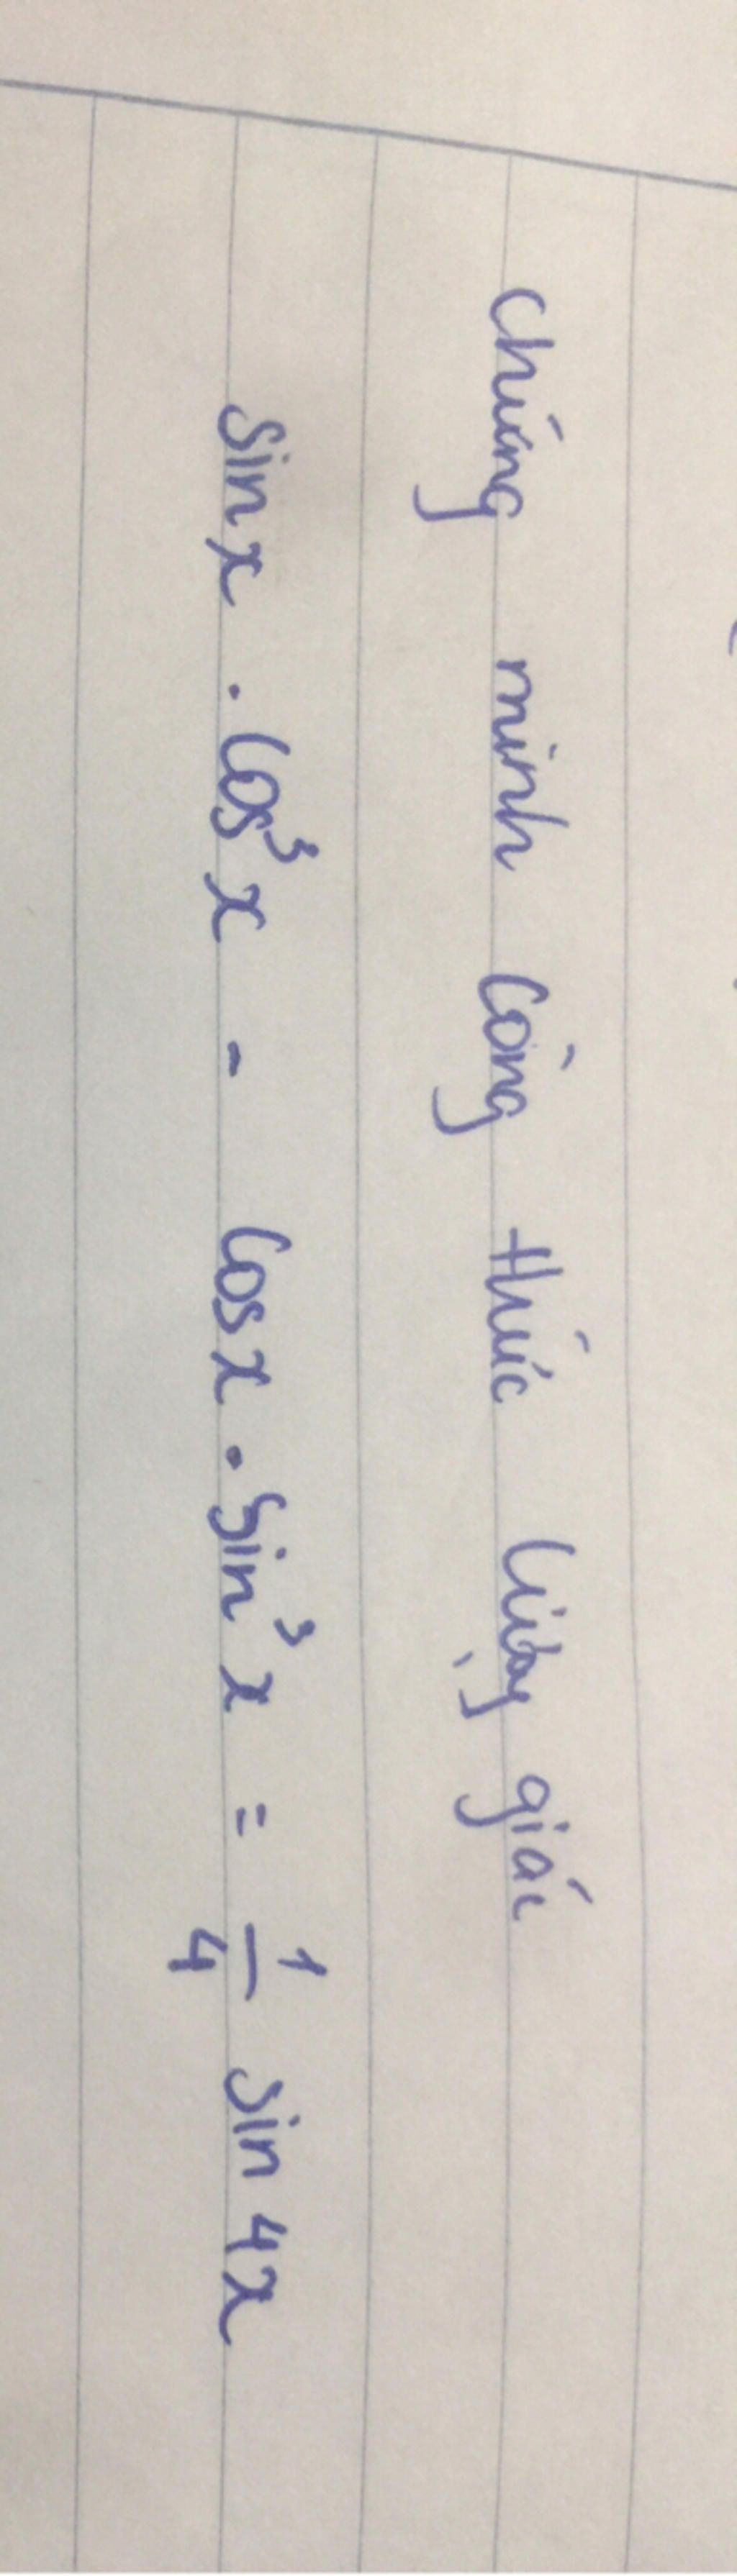 Chứng minh công thức lượng giác
sin x . cos³x - cos x . sin³x = 1/4 sin 4x